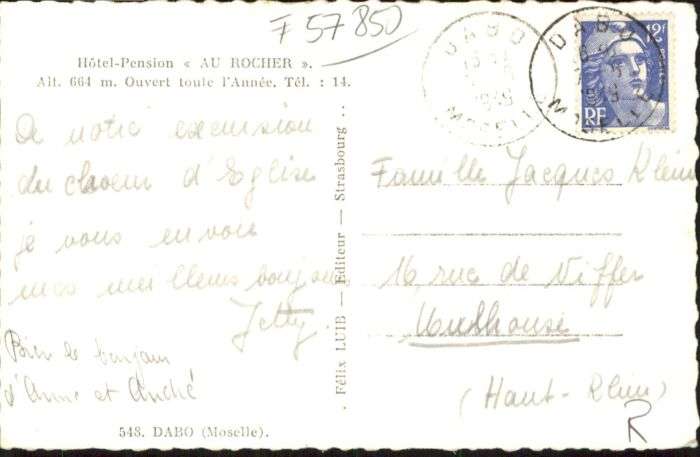 F 57850
Hôtel-Pension « AU ROCHER ».
Alt. 664 m. Ouvert toute l'Année. Tél. : 14.
De notre excursion
du choeur d'Eglise
je vous envoie
mes meilleurs bonjours
Jetty.
Bien le bonjour
d'Anne et André
548. DABO (Moselle).
Félix LUIB — Editeur — Strasbourg
DABO
MOSELLE
DABO
MOSELLE
12f
RF
Famille Jacques Klein
16, rue de Ziffer
Mulhouse
(Haut-Rhin)
R